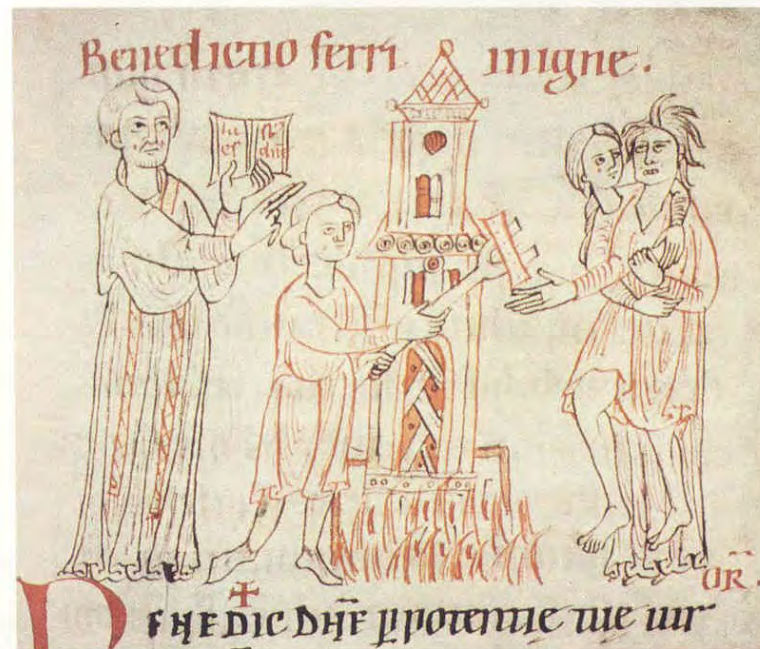 Benedictio ferri inigne.
dn̄e
OR̄.
BENEDIC DN̄E ꝑ potentie tue uir